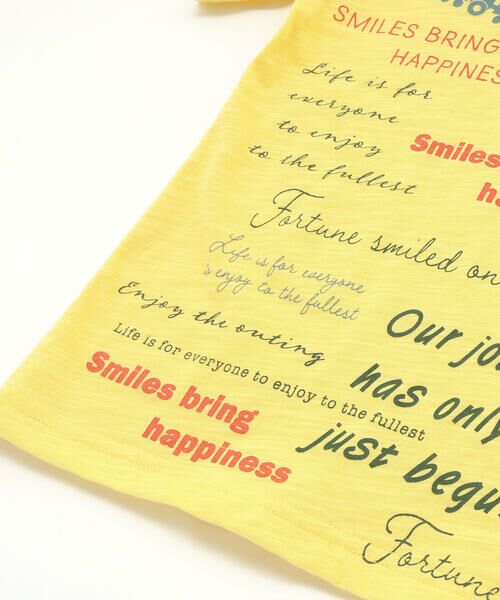 SMILES BRING
HAPPINESS
Life is for
everyone
to enjoy
to the fullest
Smiles
Fortune smiled on
Life is for everyone
is enjoy to the fullest
Enjoy the outing
Life is for everyone to enjoy to the fullest
Our
has only
just begun
Smiles bring
happiness
Fortune